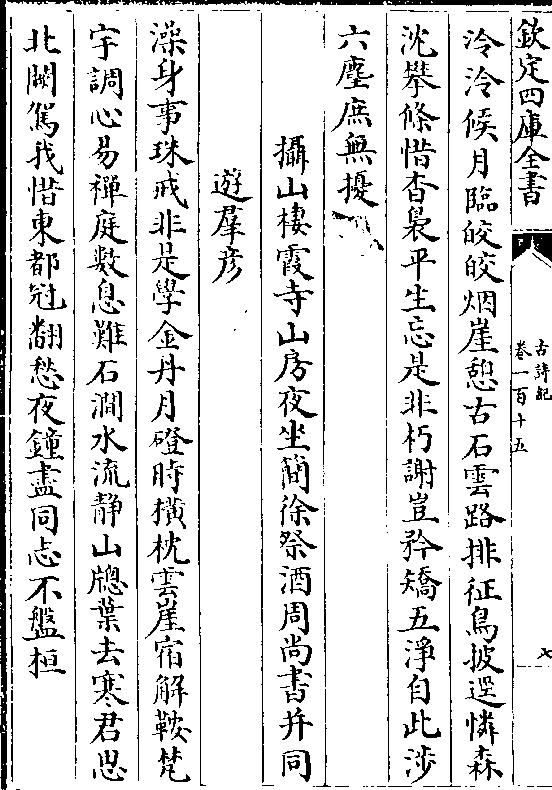 欽定四庫全書
古詩紀
卷一百十五
七
泠泠候月臨皎皎烟崖憩古石雲路排征鳥披逕憐森
沈攀條惜杳裊平生忘是非朽謝豈矜矯五淨自此涉
六塵庶無擾
攝山棲霞寺山房夜坐簡徐祭酒周尚書并同
遊羣彦
澡身事珠戒非是學金丹月磴時橫枕雲崖宿解鞍梵
宇調心易禪庭數息難石澗水流静山牕葉去寒君思
北闕駕我惜東都冠翻愁夜鐘盡同志不盤桓